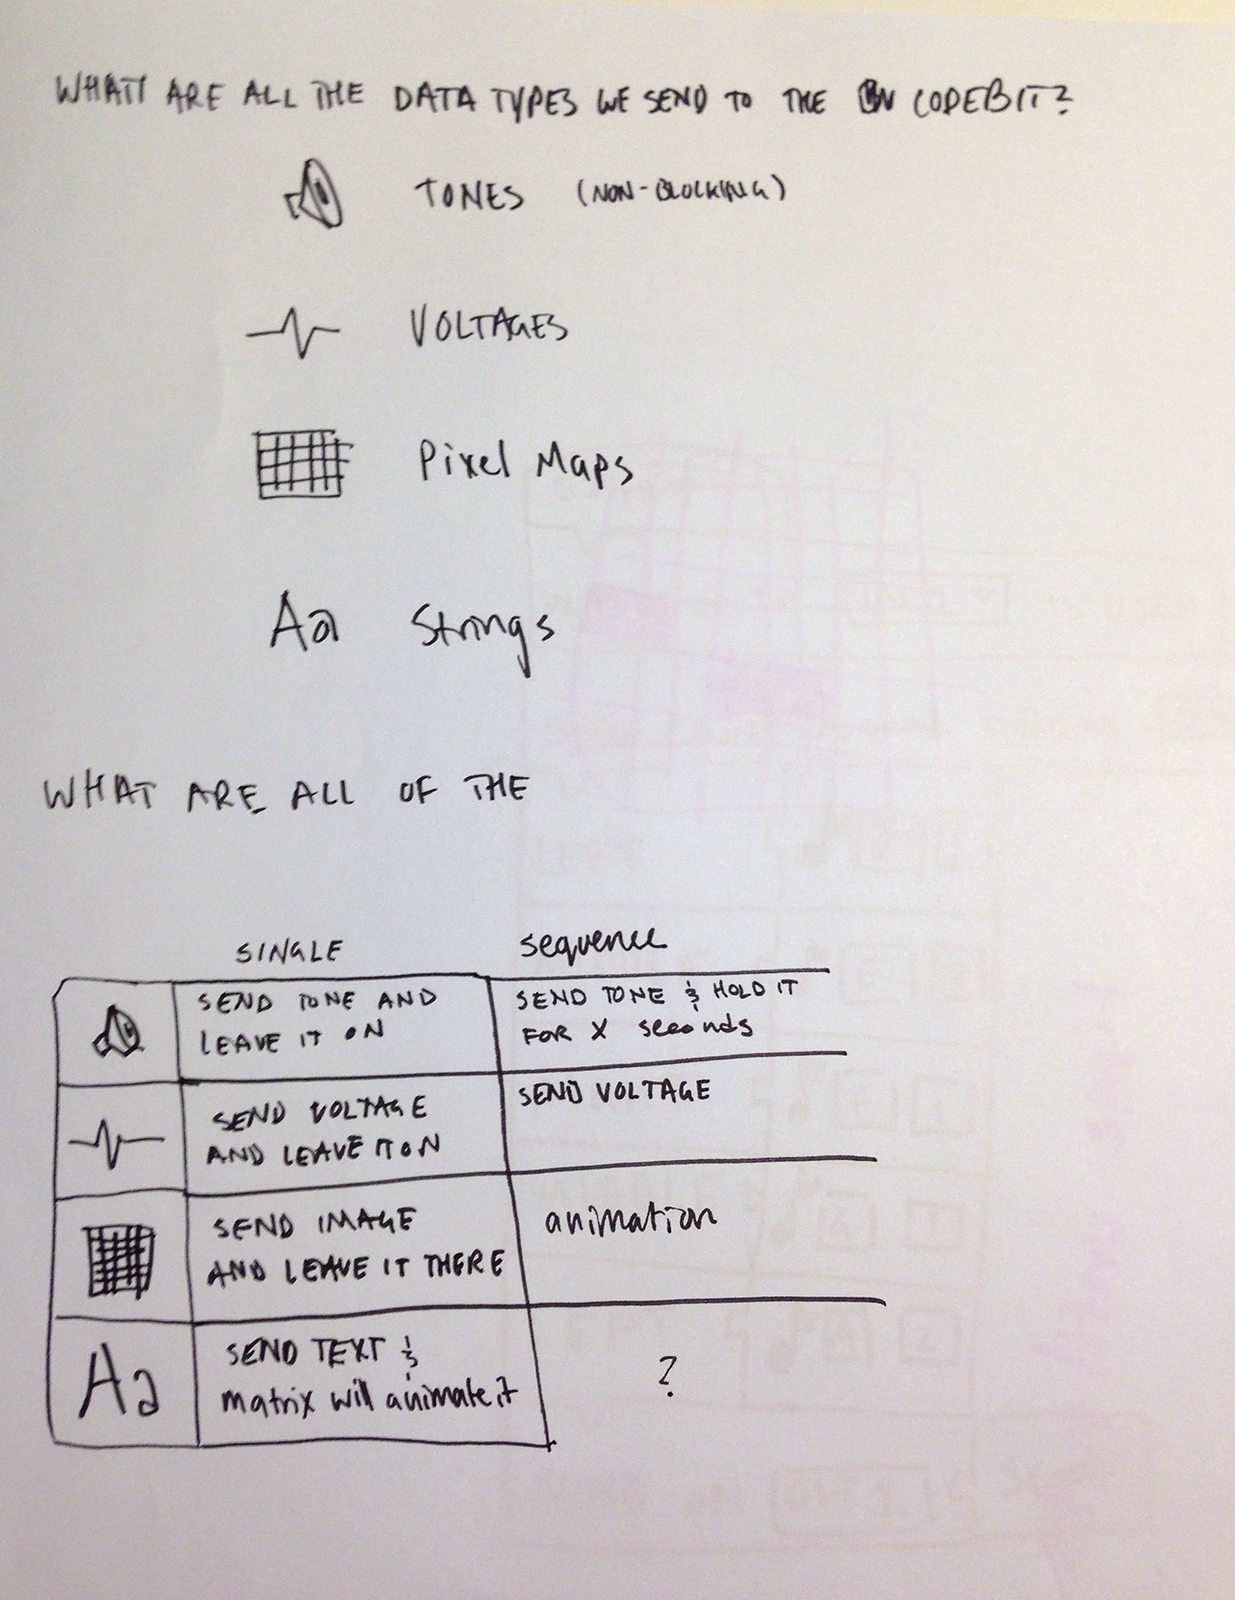 WHAT ARE ALL THE DATA TYPES WE SEND TO THE CODEBIT?
TONES (NON-BLOCKING)
VOLTAGES
Pixel Maps
Aa Strings
WHAT ARE ALL OF THE
SINGLE sequence
SEND TONE AND
LEAVE IT ON
SEND TONE & HOLD IT
FOR X seconds
SEND VOLTAGE
AND LEAVE IT ON
SEND VOLTAGE
SEND IMAGE
AND LEAVE IT THERE
animation
Aa
SEND TEXT &
matrix will animate it
?